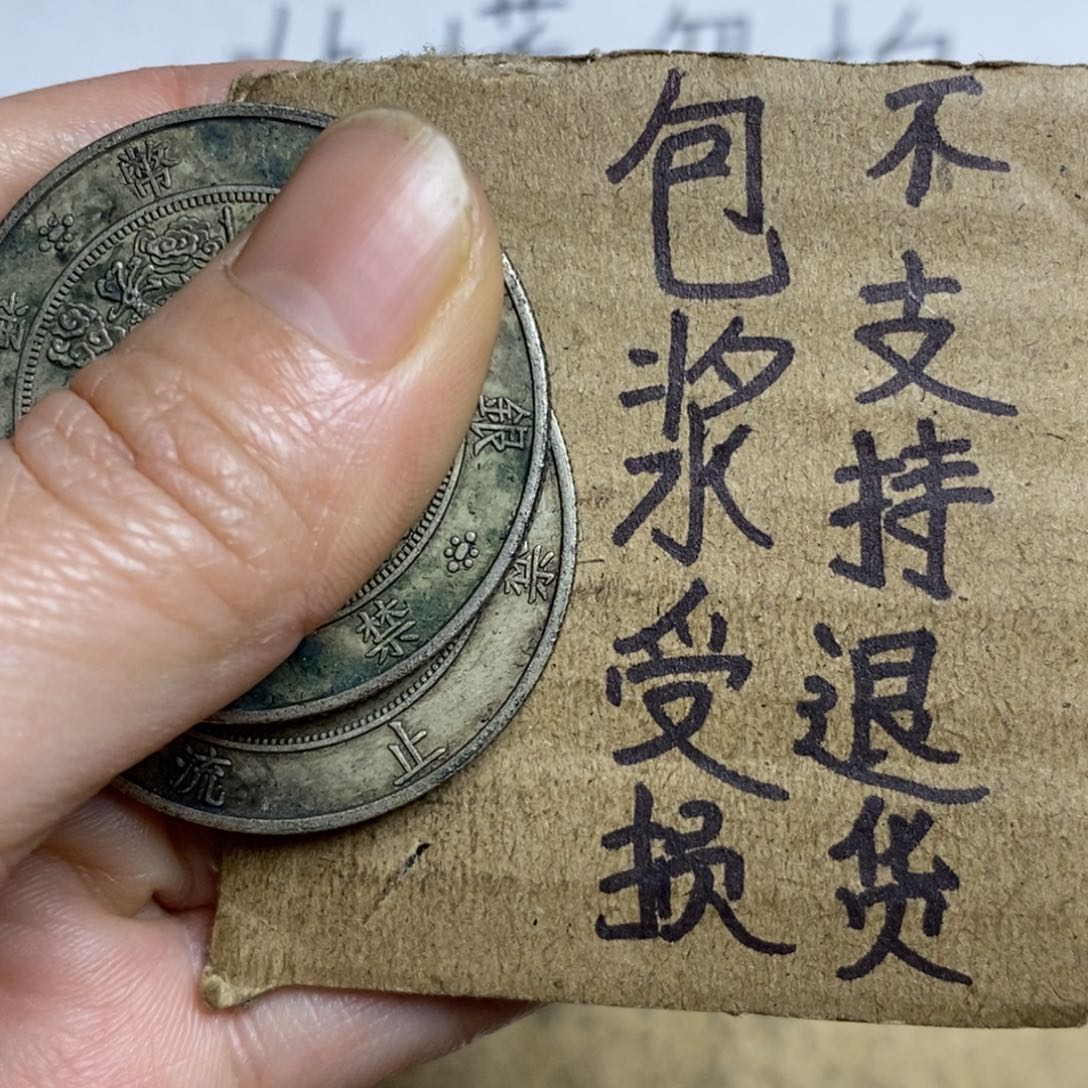 不支持退货
包浆受损
幣
銀
禁
止
流